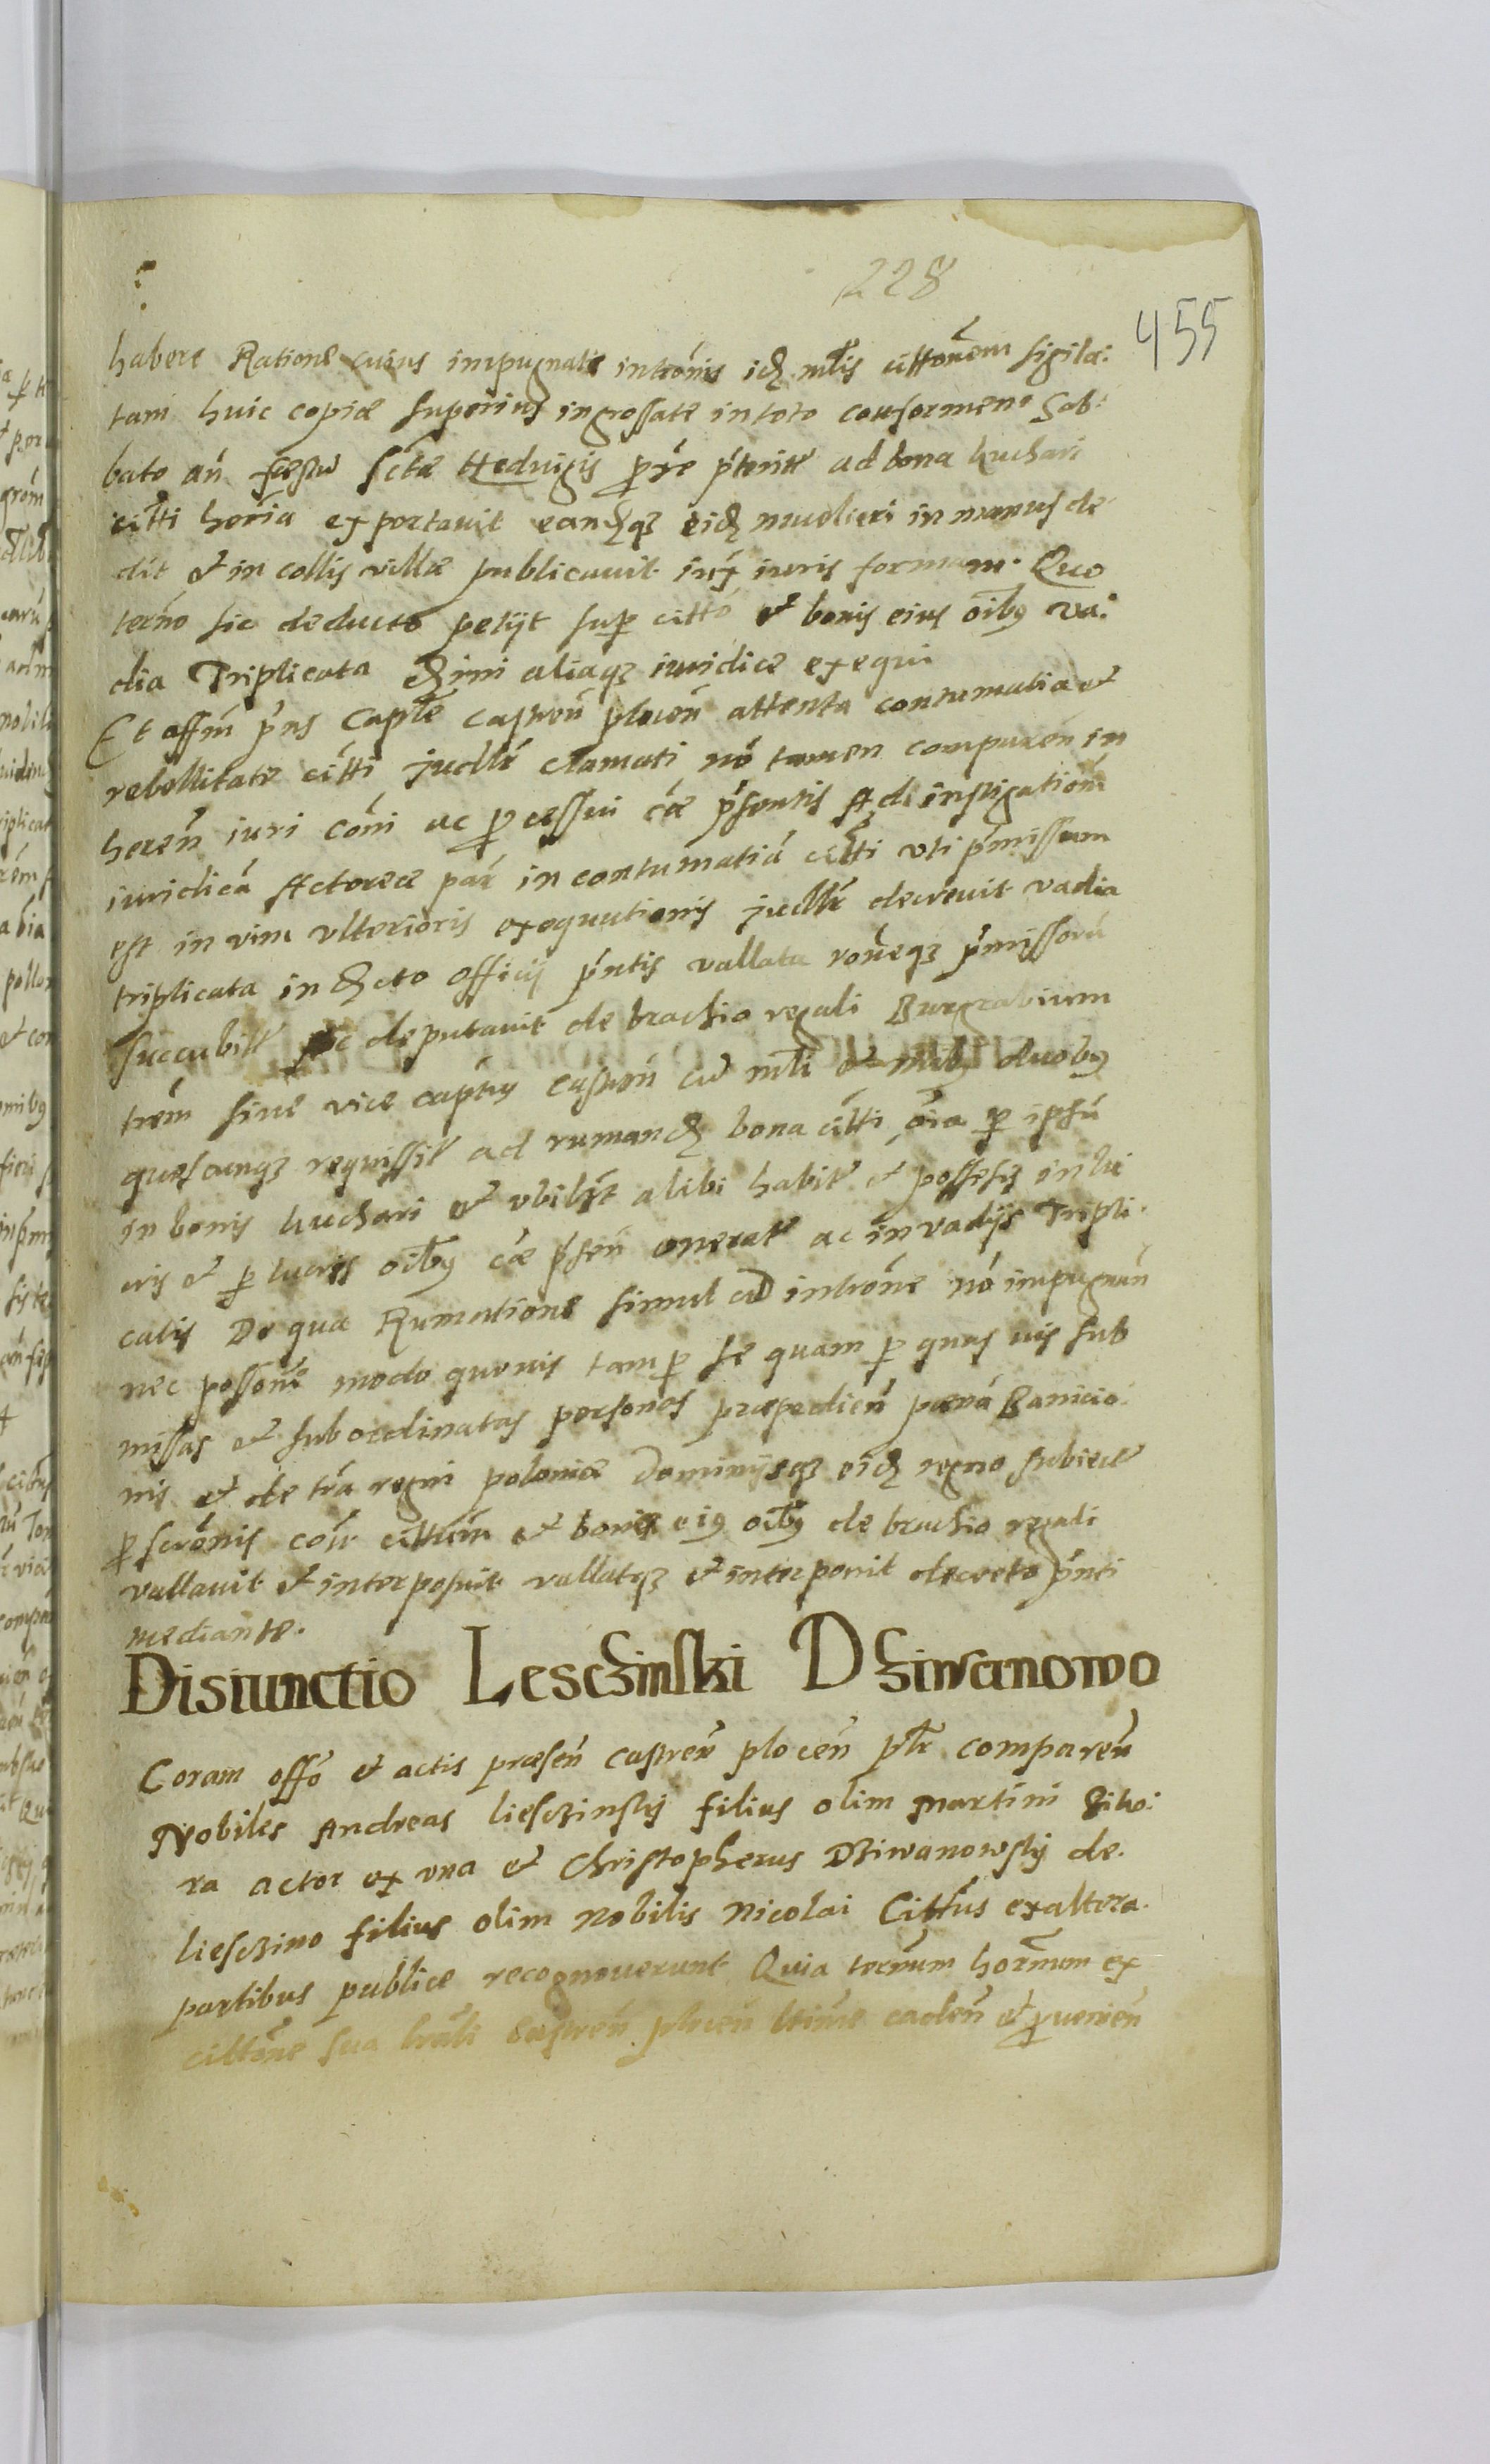 228
455
habere Ratione cuius impugnate intrōnis idē mltis cittōnem sigila:
tam huic copiæ superius ingrossate in toto conformem Sab:
bato an̄ festū sctæ Hedvigis pxre pterite ad bona kuchari
citti horia exportavit eandēqꝫ eidē mulieri in manus de
dit et in collis villæ publicavit iuxͣ iuris formam. Quo
termo sic deducto petijt sup citto et bonis eius oibꝫ va:
dia Triplicata decerni aliaqꝫ iuridice exequi
Et offm pns Captle castren̄ plocen̄ attenta contumatia et
rebellitate citti judlr clamati nō tamen comparen̄ in
heren̄ iuri cōni ac pcessui cæ psentis Ad instigationē
iuridicā Actoreæ par in contumatiā citti uti pmissum
est in vim ulterioris exequutionis judlr decrevit vadia
triplicata in decreto officij pntis vallata rōneqꝫ pmissorū
succubisse deputavit de brachio regali Burgrabium
trem sive vice captus castren̄ cū mlti et nlibꝫ duobꝫ
quoscunqꝫ requissit ad rumandū bona citti oia p ipsū
in bonis kuchari et ubilibet alibi habit et possess in lu
cris et p lucris oibꝫ cæ psen̄ onerat ac in vadijs Tripli:
catis De qua Rumatione simul cū intrōne nō impugnan̄
nec possone modo quovis tam p se quam p quas vis sub
missas et subordinatas personas præpedien̄ pœnā Bannicio:
nis et de tra regni poloniæ Dominijsqꝫ eidē regno subiect
pscrōnis con citatum et bonis eiꝫ oibꝫ de brachio regali
vallavit et interposuit vallatqꝫ et interponit decreto pnti
mediante.
Disiunctio Lesczinski Dziwanowo
Coram offō et actis præsen̄ castren̄ plocen̄ pltr comparen̄
Nobiles Andreas Liesczinskij filius olim Martini Siko:
ra actor ex una et Christopherus Dziwanowskij de
Liesczino filius olim Nobilis Nicolai Cittus ex altera
partibus publice recognoverunt Quia termum hornum ex
cittōne sua trali castren̄ plocen̄ ltime caden̄ et pvenien̄